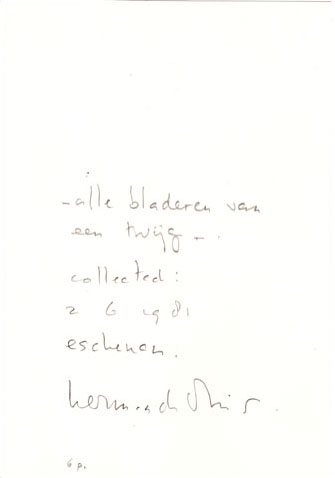 - alle bladeren van
een twijg -.
collected:
2 6 1981
eschenau.
herman de vries.
6 p.